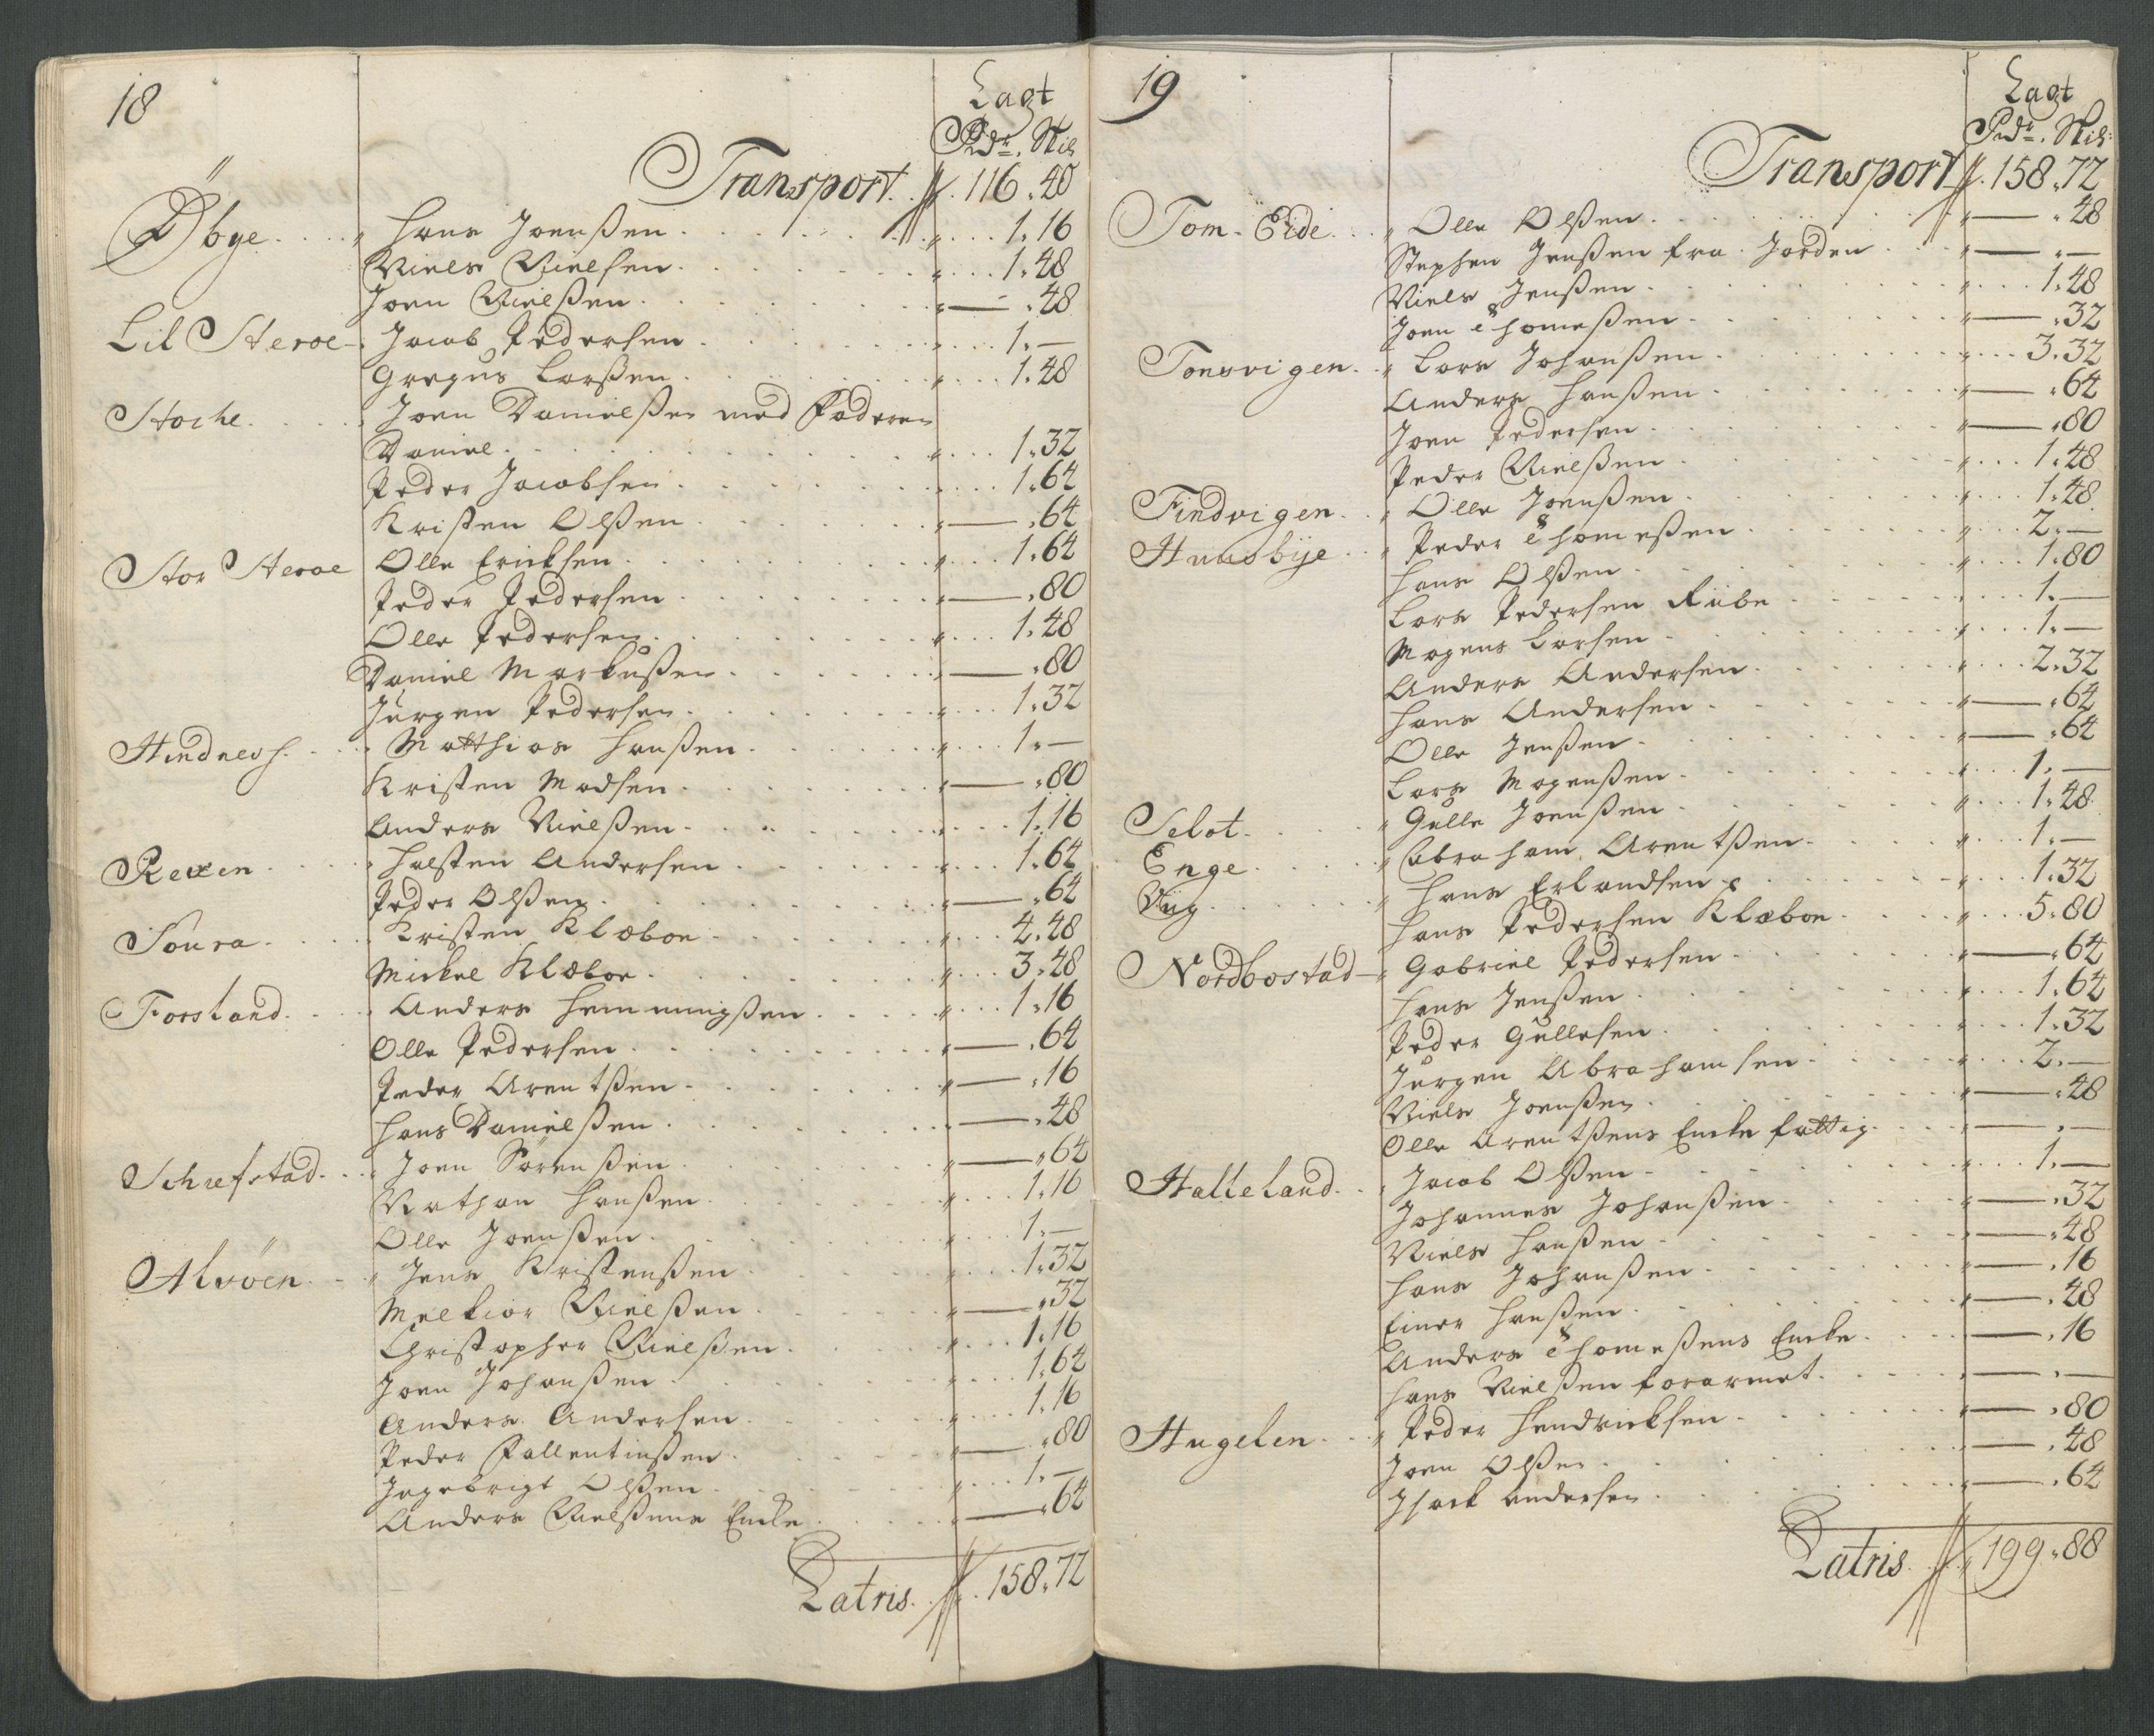 18
Lagt
Rdr. Skil
Transport. 116.48
Öbye. Hans Joenßen 1.16
Niels Nielsen 1.48
Joen Nielßen — .48
Lil Heroe Jacob Pedersen 1.—
Gregus Larßen 1.48
Stoche Joen Danielßen med Faderen
Daniel 1.32
Peder Jacobsen 1.64
Kristen Olßen — .64
Stor Heroe Olle Ericksen 1.64
Peder Pedersen — .80
Olle Pedersen 1.48
Daniel Markußen — .80
Jürgen Pedersen 1.32
Hindnesh Matthias Hanßen 1.—
Kristen Madsen — .80
Anders Nielßen 1.16
Rexen Halsten Andersen 1.64
Peder Olßen — .64
Soura Kristen Klæboe 4.48
Mickel Klæboe 3.48
Forsland Anders Hemmingßen 1.16
Olle Pedersen — .64
Peder Arentßen — .16
Hans Danielßen — .48
Schiefstad Joen Sörenßen — .64
Nathan Hanßen 1.16
Olle Joenßen 1.—
Alsöen Jens Kristenßen 1.32
Melkior Nielßen — .32
Christopher Nielßen 1.16
Joen Johanßen 1.64
Anders Andersen 1.16
Peder Fallentinßen — .80
Ingebrigt Olßen 1.—
Anders Nielßens Encke — .64
Latris. 158.72
19
Lagt
Rdr. Skil:
Transport 158.72
Tom-Eide Olle Olßen — .48
Stephen Jenßen fra Jorden — . —
Niels Jenßen 1.48
Joen Thomeßen — .32
Tonsvigen Lars Johanßen 3.32
Anders Hanßen — .64
Joen Pedersen — .80
Peder Nielßen 1.48
Findvigen Olle Joenßen 1.48
Huusbÿe Peder Thomeßen 2.—
Hans Olßen 1.80
Lars Pedersen Riibe 1.—
Mogens Larsen 1.—
Anders Andersen 2.32
Hans Andersen — .64
Olle Jenßen — .64
Lars Mogenßen 1.—
Selot Gulle Joenßen 1.48
Enge Abraham Arentßen 1.—
Aug Hans Erlandsen 1.32
Hans Pedersen Klæboe 5.80
Nordbostad Gabriel Pedersen — .64
Hans Jenßen 1.64
Peder Gullesen 1.32
Jürgen Abrahamsen 2.—
Niels Joenßen — .48
Olle Arentßens Encke fattig — . —
Halleland Jacob Olßen 1.—
Johannes Johanßen — .32
Niels Hanßen — .48
Hans Johanßen — .16
Einer Hanßen — .48
Anders Thomeßens Encke — .16
Hans Nielßen forarmet — . —
Hugelen Peder Hendricksen — .80
Joen Olßen — .48
Isack Andersen — .64
Latris 199.88